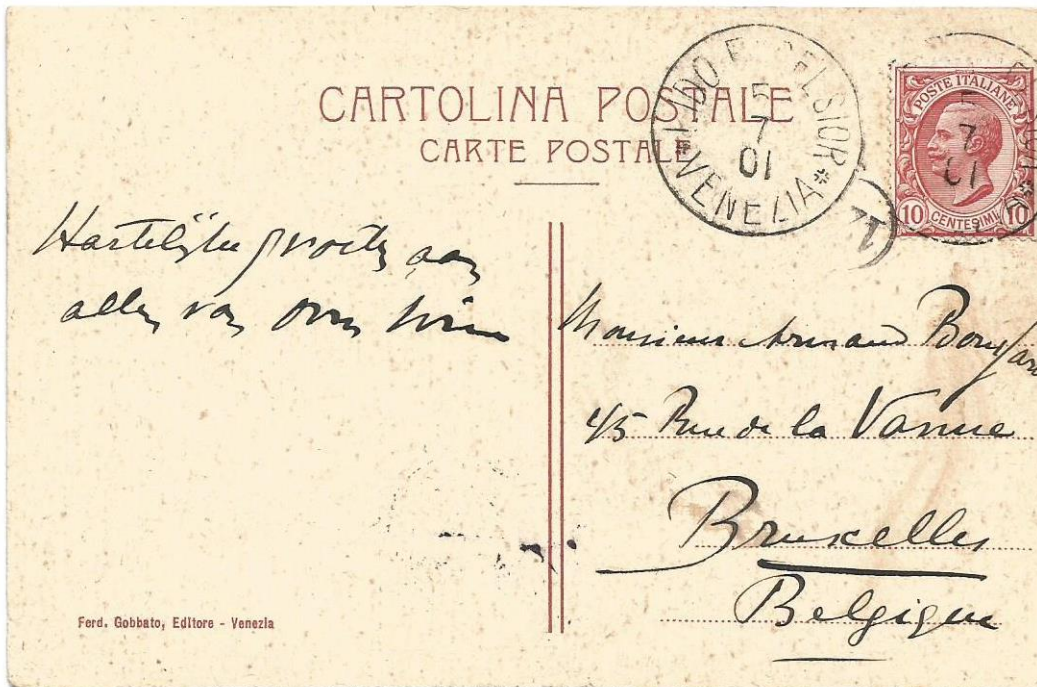 CARTOLINA POSTALE
CARTE POSTALE
LIDO EXCELSIOR
5
7
01
VENEZIA
POSTE ITALIANE
10 CENTESIMI 10
Hartelijke groeten aan
allen van
Monsieur Armand
45 Rue de la Vanne
Bruxelles
Belgique
Ferd. Gobbato, Editore - Venezia